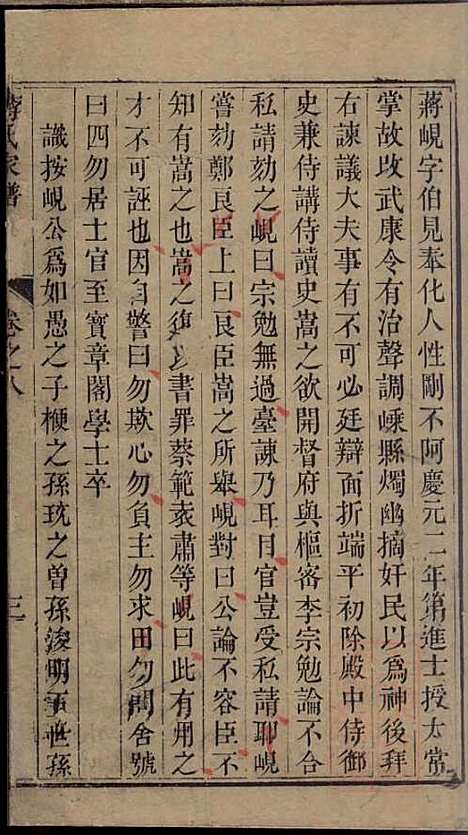 蔣峴字伯見奉化人性剛不阿慶元二年第進士授太常
掌故改武康令有治聲調嵊縣燭幽摘奸民以爲神後拜
右諫議大夫事有不可必廷辯面折端平初除殿中侍御
史兼侍講侍讀史嵩之欲開督府與樞密李宗勉論不合
私請劾之峴曰宗勉無過臺諫乃耳目官豈受私請耶峴
嘗劾鄭良臣上曰良臣嵩之所舉峴對曰公論不容臣不
知有嵩之也嵩之復以書罪蔡範袁肅等峴曰此有用之
才不可誣也因自警曰勿欺心勿負主勿求田勿問舍號
曰四勿居士官至寶章閣學士卒
識按峴公爲如愚之子梗之孫珫之曾孫浚明五世孫
蔣氏家譜
卷之八
三